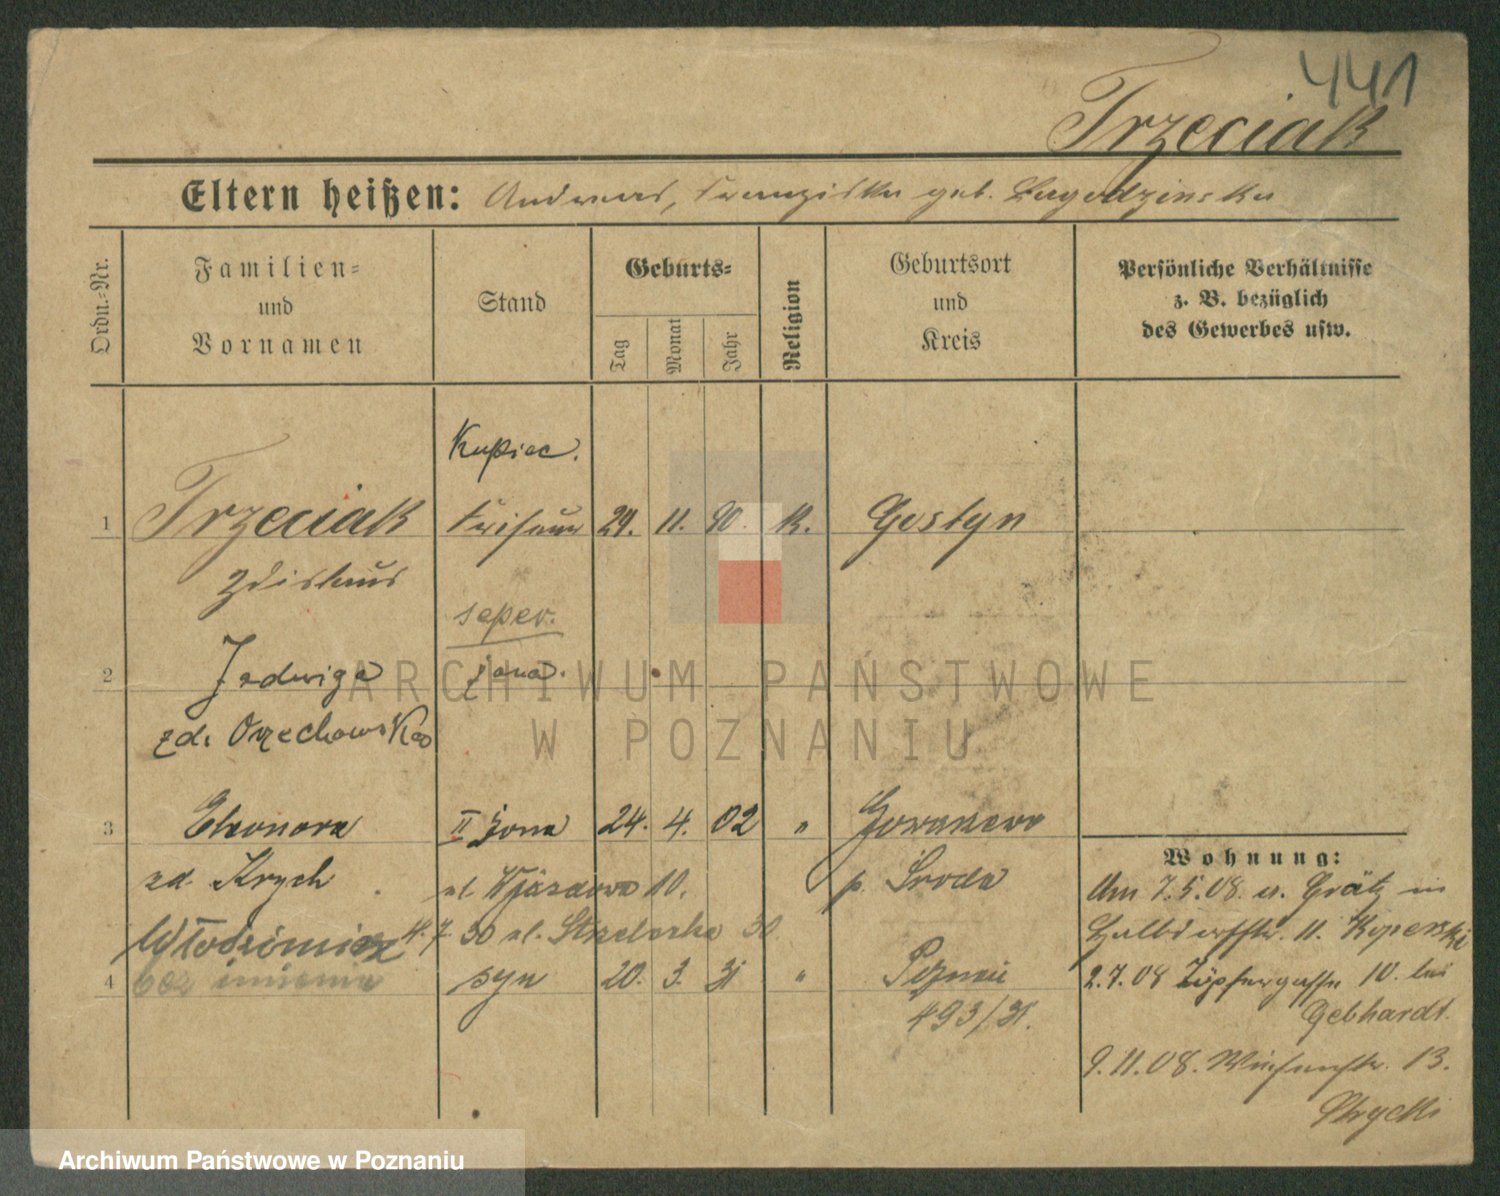 441
Trzeciak
Eltern heißen: Andreas, Franziska geb. Lagodzinska
Ordn.-Nr.
Familien-
und
Vornamen
Stand
Geburts-
Tag
Monat
Jahr
Religion
Geburtsort
und
Kreis
Persönliche Verhältnisse
z. B. bezüglich
des Gewerbes usw.
Kupiec.
1 Trzeciak Friseur 29. 11. 90. K. Gostyn
Zdislaus
seper.
2 Jadwiga żona.
zd. Orzechowska
3 Eleonora II żona 24. 4. 02 "
zd. Krych ul. Wjazdowa 10. p. Środa
Włodzimierz 4.7.30 ul. Strzelecka 30
4 bez imienia syn 20. 3. 31 " Poznań
493/31.
Wohnung:
Am 7.5.08 a. Grätz in
Halbdorfstr. 11. Koperski
2.7.08 Töpfergasse 10. bei
Gebhardt
9.11.08. Wiesenstr. 13.
ARCHIWUM PAŃSTWOWE
W POZNANIU
Archiwum Państwowe w Poznaniu